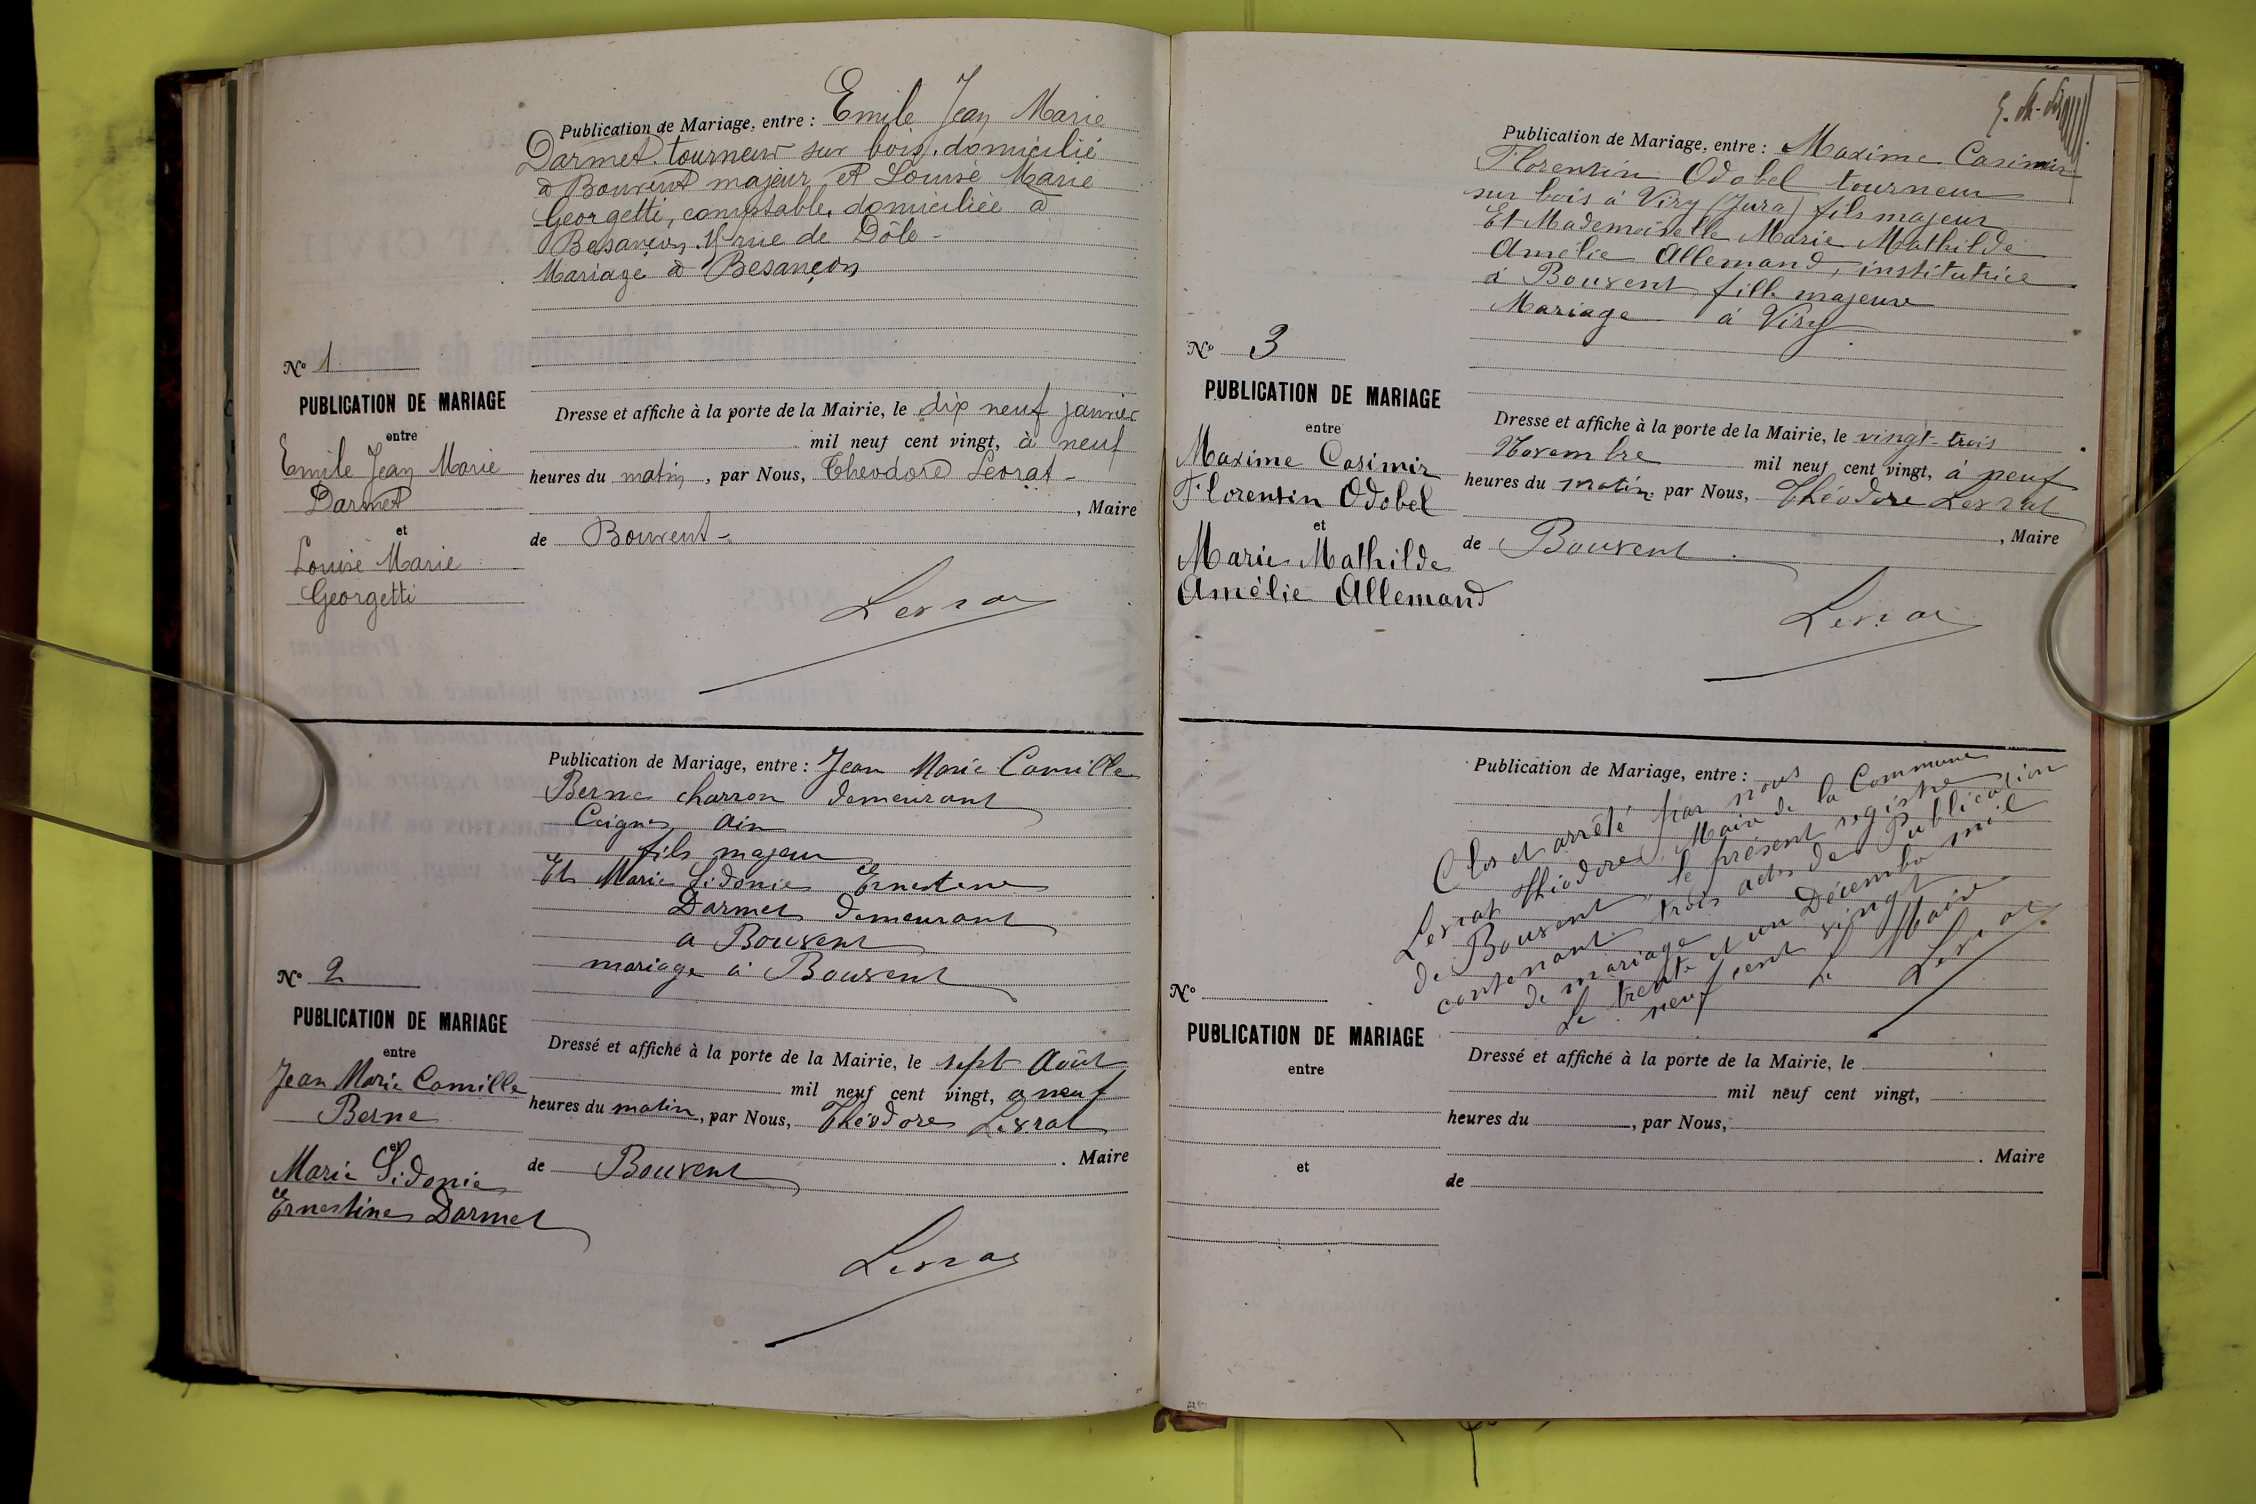 Publication de Mariage, entre : Emile Jean Marie
Darmet tourneur sur bois, domicilié
à Bouvent majeur et Louise Marie
Georgetti, comptable, domiciliée à
Besançon, rue de Dôle -
Mariage à Besançon
N° 1
PUBLICATION DE MARIAGE
entre
Emile Jean Marie
Darmet
et
Louise Marie
Georgetti
Dresse et affiche à la porte de la Mairie, le dix neuf janvier
mil neuf cent vingt, à neuf
heures du matin, par Nous, Théodore Levrat -
, Maire
de Bouvent -
Levrat
Publication de Mariage, entre : Jean Marie Camille
Berne charron demeurant
Ceignes Ain
fils majeur
Et Marie Sidonie Ernestine
Darmet demeurant
a Bouvent
mariage à Bouvent
N° 2
PUBLICATION DE MARIAGE
entre
Jean Marie Camille
Berne
et
Marie Sidonie
Ernestine Darmet
Dressé et affiché à la porte de la Mairie, le sept Août
mil neuf cent vingt, a neuf
heures du matin, par Nous, Théodore Levrat
. Maire
de Bouvent
Levrat
Publication de Mariage, entre : Maxime Casimir
Florentin Odobel tourneur
sur bois à Viry (Jura) fils majeur
Et Mademoiselle Marie Mathilde
Amélie Allemand, institutrice
à Bouvent fille majeure
Mariage à Viry
N° 3
PUBLICATION DE MARIAGE
entre
Maxime Casimir
Florentin Odobel
et
Marie Mathilde
Amélie Allemand
Dresse et affiche à la porte de la Mairie, le vingt-trois
Novembre mil neuf cent vingt, à neuf
heures du matin, par Nous, Théodore Levrat
, Maire
de Bouvent
Levrat
Publication de Mariage, entre :
Clos et arrêté par nous
Levrat Théodore, Maire de la Commune
de Bouvent le présent registre
contenant trois actes de Publication
de mariage
Le trente et un Décembre mil
neuf cent vingt
Le Maire
Levrat
N°
PUBLICATION DE MARIAGE
entre
et
Dressé et affiché à la porte de la Mairie, le
mil neuf cent vingt,
heures du , par Nous,
. Maire
de